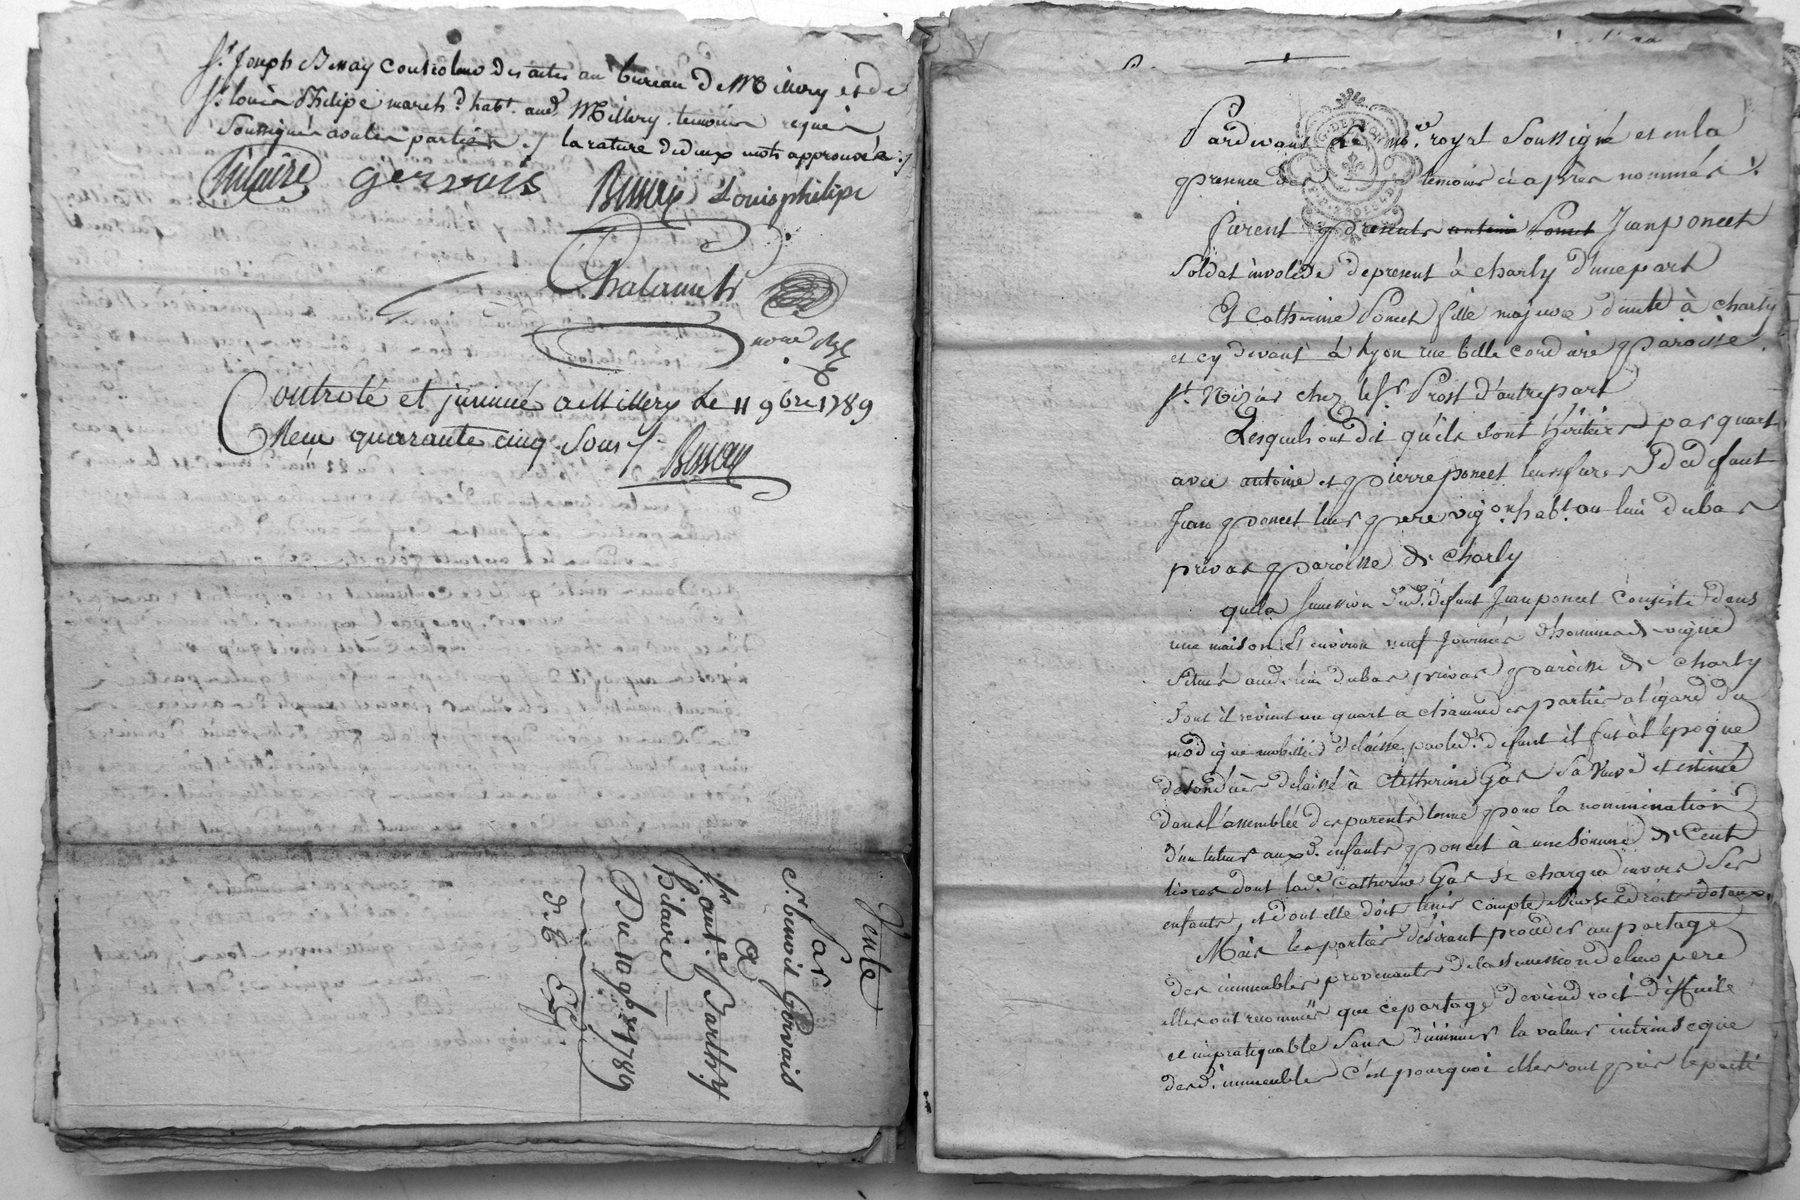 Sr. Joseph Bessay Controleur des actes au bureau de Millery et de
Sr. Louis Philipe march.d habt. aud. Millery temoins requis
soussignés avec les parties ./. la rature de deux mots approuvée ./.
hilaire gervais Bessay Louis philipe
Chalamel
nore. Ral.
Controlé et insinué a Millery le 11 9bre 1789
Reçu quarante cinq sous ./. Bessay
Vente
Par
Sr. benoit Gervais
a
Sr. ant.e Barth.y
hilaire
Du 10 9bre 1789
Pardevant Le no.re royal soussigné et en la
presence des temoins ci après nommés .
furent presents antoine Poncet Jean poncet
soldat invalide de present à charly d'une part
Et Catherine Poncet fille majeure dudit à charly
et cy devant à lyon rue belle cordiere paroisse
st. Nizier chez le Sr. Prost d'autre part
Lesquels ont dit qu'ils sont héritiers par quart
avec antoine et pierre poncet leurs freres de defunt
Jean poncet leur pere vig.on habt. au lieu du bas
privas paroisse de charly
que la succession dud. défunt Jean poncet consiste dans
une maison et environ neuf journées d'hommes de vigne
situés aud. lieu du bas privas paroisse de charly
dont il revient un quart a chacune des parties a l'égard du
modique mobilier délaissé par led. défunt il fut à l'époque
de son décès délaissé à Catherine Gas sa veuve et estimé
dans l'assemblée des parents tenue pour la nommination
d'un tuteur auxd. enfants poncet à une somme de Cent
livres dont lad. Catherine Gas se chargea envers ses
enfants, et dont elle doit tenir compte
Mais les parties désirant proceder au partage
des immeubles provenants de la succession de leur pere
elles ont reconnues que ce partage deviendroit difficile
et impratiquable sans diminuer la valeur intrinseque
desd. immeubles c'est pourquoi elles ont pris le parti